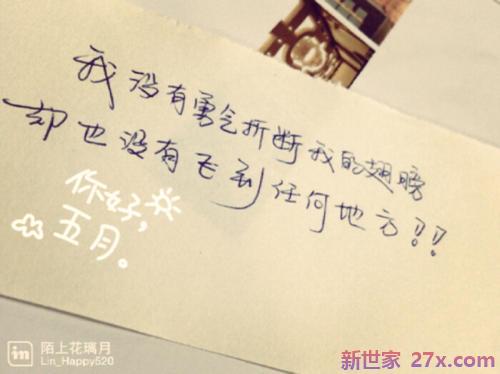 我没有勇气折断我的翅膀
却也没有飞到任何地方?!
你好,
五月。
in
陌上花璃月
Lin_Happy520
新世家 27x.com